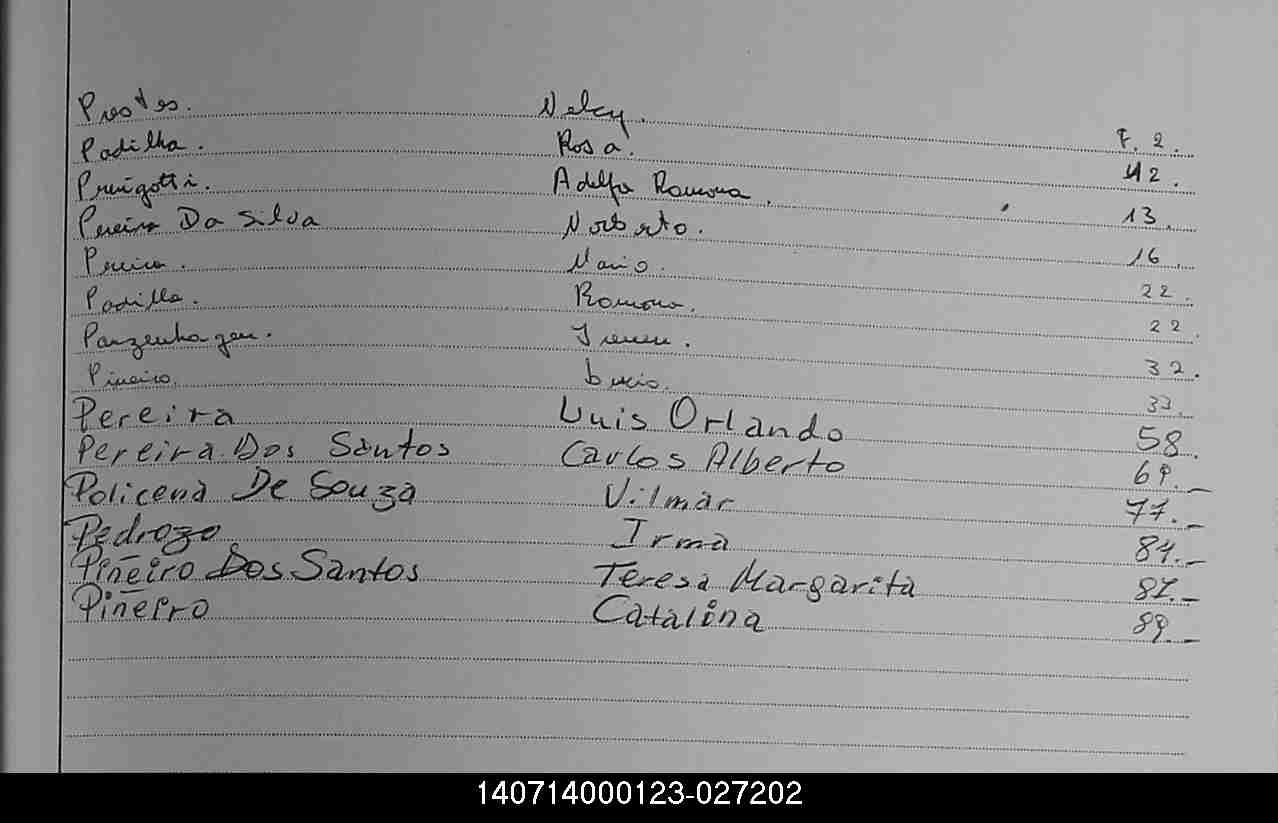 Prestes. Nelcy. F. 2.
Padilha. Rosa. 12.
Prengotti. Adelfa Ramona. 13.
Pereira Da Silva Norberto. 16.
Pereira. Mario. 22.
Padilla. Ramona. 22.
Panzenhagen. Ireneu. 32.
Pineiro. Lucio. 33.
Pereira Luis Orlando 58.
Pereira Dos Santos Carlos Alberto 69.-
Policena De Souza Vilmar 77.-
Pedrozo Irma 84.-
Piñeiro Dos Santos Teresa Margarita 87.-
Piñeiro Catalina 89.-
140714000123-027202